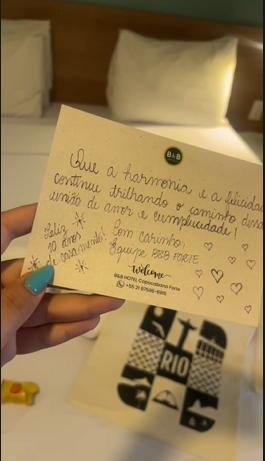 B&B
Que a harmonia e a felicidade
continue trilhando o caminho dessa
união de amor e cumplicidade!
Feliz
10 anos
de casamento!
Com carinho,
Equipe B&B FORTE
Welcome
B&B HOTEL Copacabana Forte
RIO